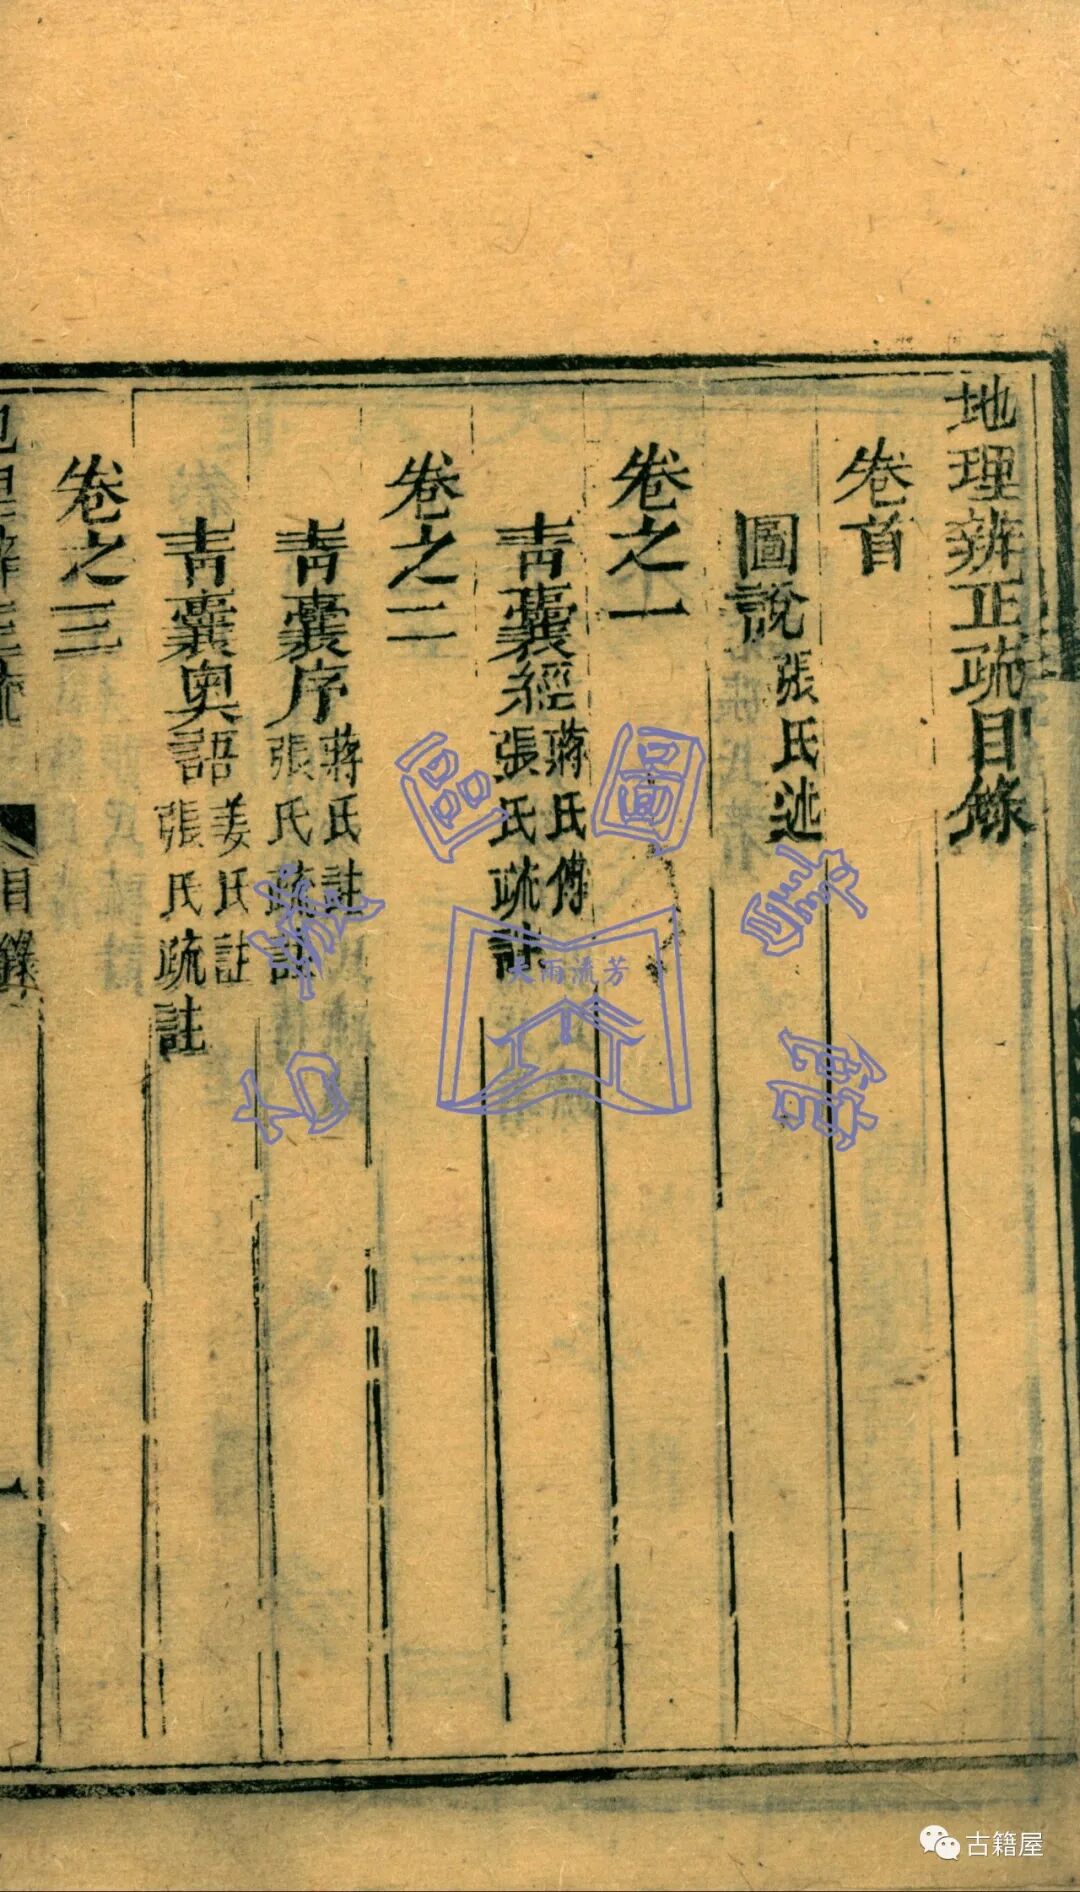 地理辨正疏目錄
卷首
圖說 張氏述
卷之一
青囊經 蔣氏傳 張氏疏註
卷之二
青囊序 蔣氏註 張氏疏註
青囊奧語 姜氏註 張氏疏註
卷之三
地理辨正疏 目錄 一
天雨流芳
古籍屋